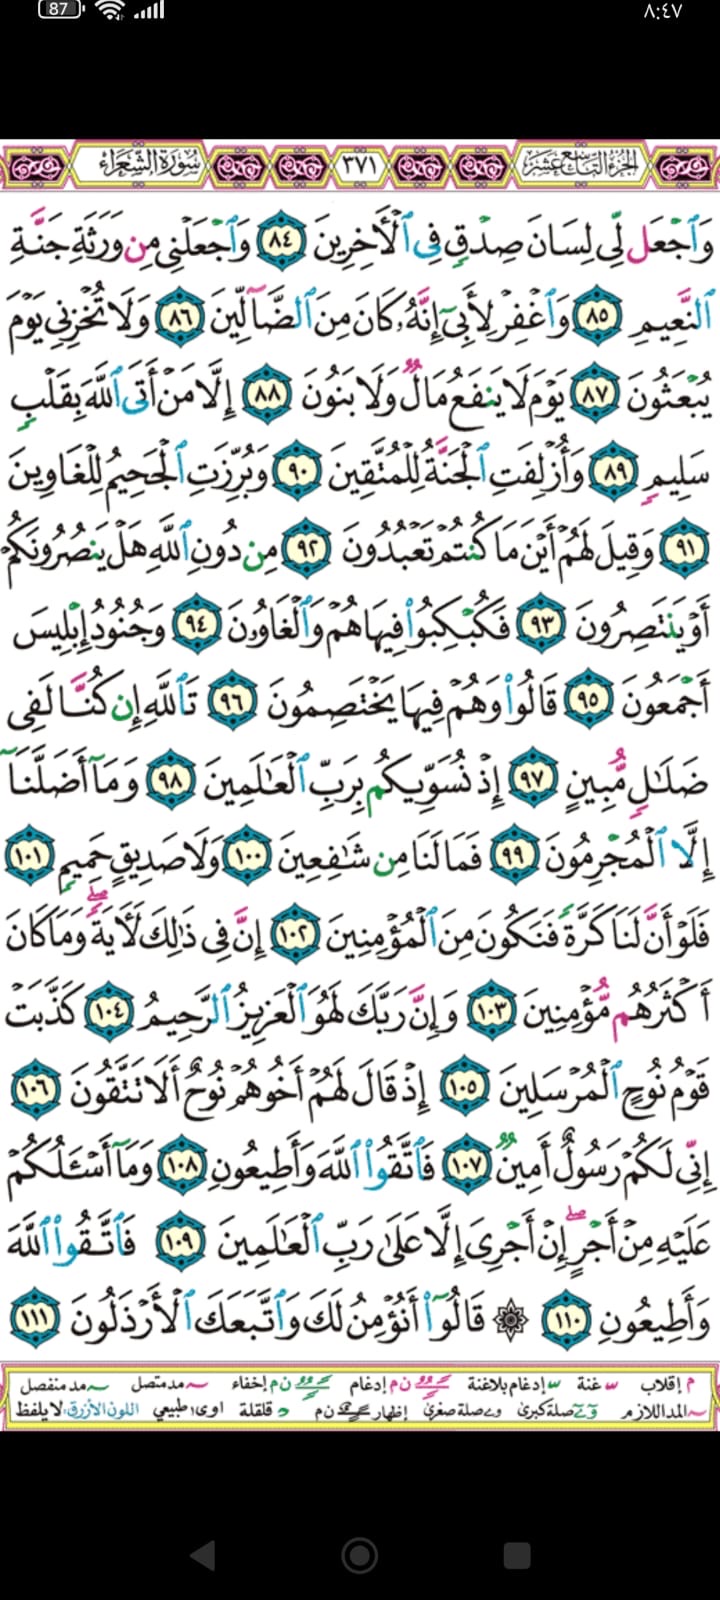 87 ٨:٤٧
الجزء التاسع عشر ٣٧١ سورة الشعراء
وَٱجْعَل لِّى لِسَانَ صِدْقٍ فِى ٱلْأَخِرِينَ ٨٤ وَٱجْعَلْنِى مِن وَرَثَةِ جَنَّةِ
ٱلنَّعِيمِ ٨٥ وَٱغْفِرْ لِأَبِىٓ إِنَّهُۥ كَانَ مِنَ ٱلضَّآلِّينَ ٨٦ وَلَا تُخْزِنِى يَوْمَ
يُبْعَثُونَ ٨٧ يَوْمَ لَا يَنفَعُ مَالٌ وَلَا بَنُونَ ٨٨ إِلَّا مَنْ أَتَى ٱللَّهَ بِقَلْبٍ
سَلِيمٍ ٨٩ وَأُزْلِفَتِ ٱلْجَنَّةُ لِلْمُتَّقِينَ ٩٠ وَبُرِّزَتِ ٱلْجَحِيمُ لِلْغَاوِينَ
٩١ وَقِيلَ لَهُمْ أَيْنَ مَا كُنتُمْ تَعْبُدُونَ ٩٢ مِن دُونِ ٱللَّهِ هَلْ يَنصُرُونَكُمْ
أَوْ يَنتَصِرُونَ ٩٣ فَكُبْكِبُوا۟ فِيهَا هُمْ وَٱلْغَاوُۥنَ ٩٤ وَجُنُودُ إِبْلِيسَ
أَجْمَعُونَ ٩٥ قَالُوا۟ وَهُمْ فِيهَا يَخْتَصِمُونَ ٩٦ تَٱللَّهِ إِن كُنَّا لَفِى
ضَلَٰلٍ مُّبِينٍ ٩٧ إِذْ نُسَوِّيكُم بِرَبِّ ٱلْعَٰلَمِينَ ٩٨ وَمَآ أَضَلَّنَآ
إِلَّا ٱلْمُجْرِمُونَ ٩٩ فَمَا لَنَا مِن شَٰفِعِينَ ١٠٠ وَلَا صَدِيقٍ حَمِيمٍ ١٠١
فَلَوْ أَنَّ لَنَا كَرَّةً فَنَكُونَ مِنَ ٱلْمُؤْمِنِينَ ١٠٢ إِنَّ فِى ذَٰلِكَ لَأَيَةً ۖ وَمَا كَانَ
أَكْثَرُهُم مُّؤْمِنِينَ ١٠٣ وَإِنَّ رَبَّكَ لَهُوَ ٱلْعَزِيزُ ٱلرَّحِيمُ ١٠٤ كَذَّبَتْ
قَوْمُ نُوحٍ ٱلْمُرْسَلِينَ ١٠٥ إِذْ قَالَ لَهُمْ أَخُوهُمْ نُوحٌ أَلَا تَتَّقُونَ ١٠٦
إِنِّى لَكُمْ رَسُولٌ أَمِينٌ ١٠٧ فَٱتَّقُوا۟ ٱللَّهَ وَأَطِيعُونِ ١٠٨ وَمَآ أَسْـَٔلُكُمْ
عَلَيْهِ مِنْ أَجْرٍ ۖ إِنْ أَجْرِىَ إِلَّا عَلَىٰ رَبِّ ٱلْعَٰلَمِينَ ١٠٩ فَٱتَّقُوا۟ ٱللَّهَ
وَأَطِيعُونِ ١١٠ ۞ قَالُوٓا۟ أَنُؤْمِنُ لَكَ وَٱتَّبَعَكَ ٱلْأَرْذَلُونَ ١١١
م إقلاب غنة إدغام بلاغنة ن م إدغام ن م إخفاء مد متصل مد منفصل
المد اللازم صلة كبرى صلة صغرى إظهار ن م قلقلة اوى طبيعي اللون الأزرق: لا يلفظ